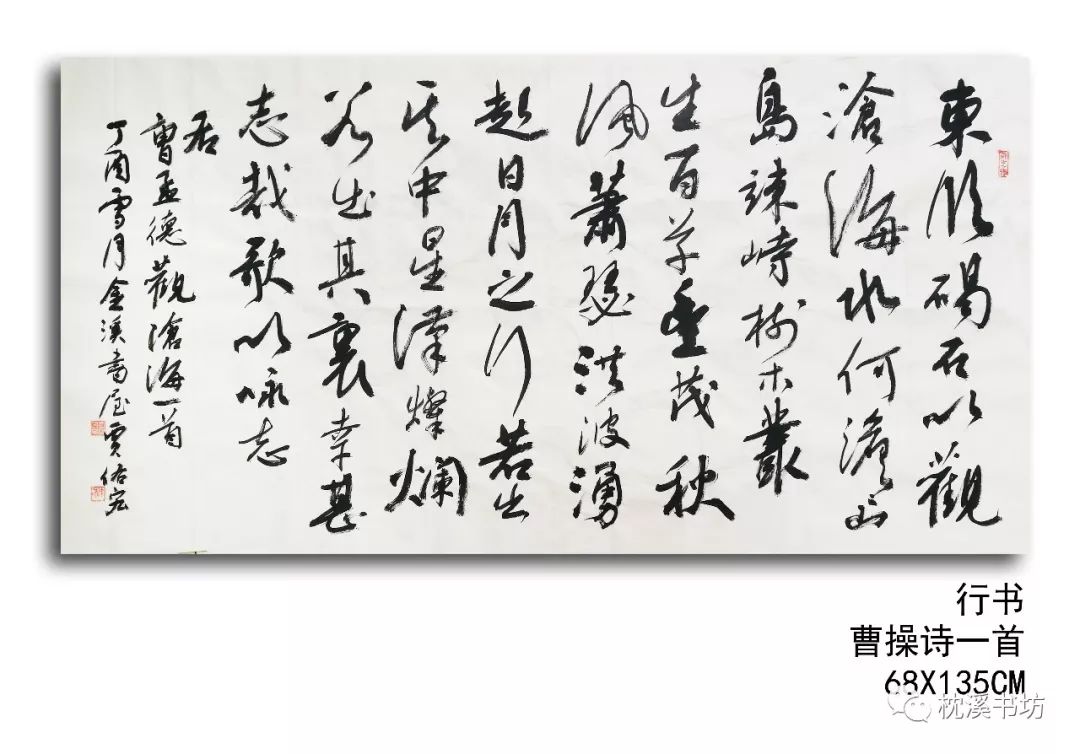 東臨碣石以觀
滄海水何澹山
島竦峙樹木叢
生百草豐茂秋
風蕭瑟洪波湧
起日月之行若出
其中星漢燦爛
若出其裏幸甚
志哉歌以咏志
右
曹孟德觀滄海一首
丁酉雪月金溪書屋賈佑宏
行书
曹操诗一首
68X135CM
枕溪书坊